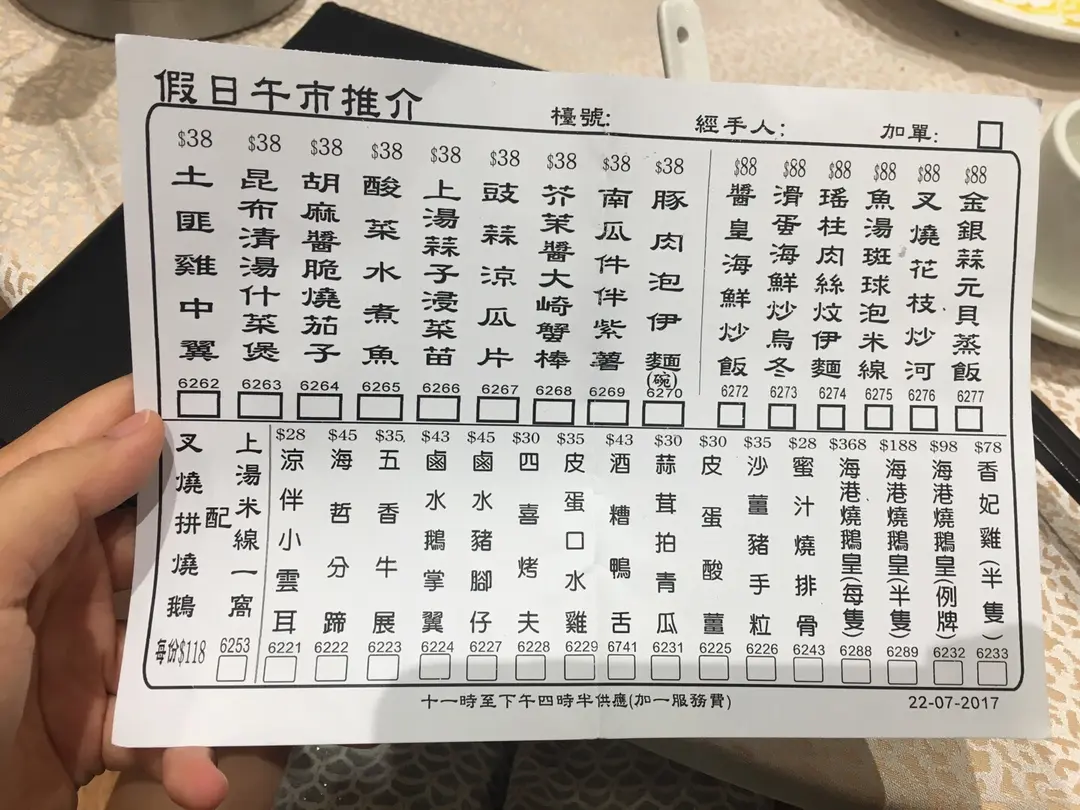 假日午市推介
檯號:
經手人:
加單:
$38 土匪雞中翼 6262
$38 昆布清湯什菜煲 6263
$38 胡麻醬脆燒茄子 6264
$38 酸菜水煮魚 6265
$38 上湯蒜子浸菜苗 6266
$38 豉蒜涼瓜片 6267
$38 芥茉醬大崎蟹棒 6268
$38 南瓜件伴紫薯 6269
$38 豚肉泡伊麵(碗) 6270
$88 醬皇海鮮炒飯 6272
$88 滑蛋海鮮炒烏冬 6273
$88 瑤柱肉絲炆伊麵 6274
$88 魚湯斑球泡米線 6275
$88 叉燒花枝炒河 6276
$88 金銀蒜元貝蒸飯 6277
叉燒拼燒鵝
配
上湯米線一窩
每份$118 6253
$28 涼伴小雲耳 6221
$45 海哲分蹄 6222
$35 五香牛展 6223
$43 鹵水鵝掌翼 6224
$45 鹵水豬腳仔 6227
$30 四喜烤夫 6228
$35 皮蛋口水雞 6229
$43 酒糟鴨舌 6741
$30 蒜茸拍青瓜 6231
$30 皮蛋酸薑 6225
$35 沙薑豬手粒 6226
$28 蜜汁燒排骨 6243
$368 海港燒鵝皇(每隻) 6288
$188 海港燒鵝皇(半隻) 6289
$98 海港燒鵝皇(例牌) 6232
$78 香妃雞(半隻) 6233
十一時至下午四時半供應(加一服務費)
22-07-2017